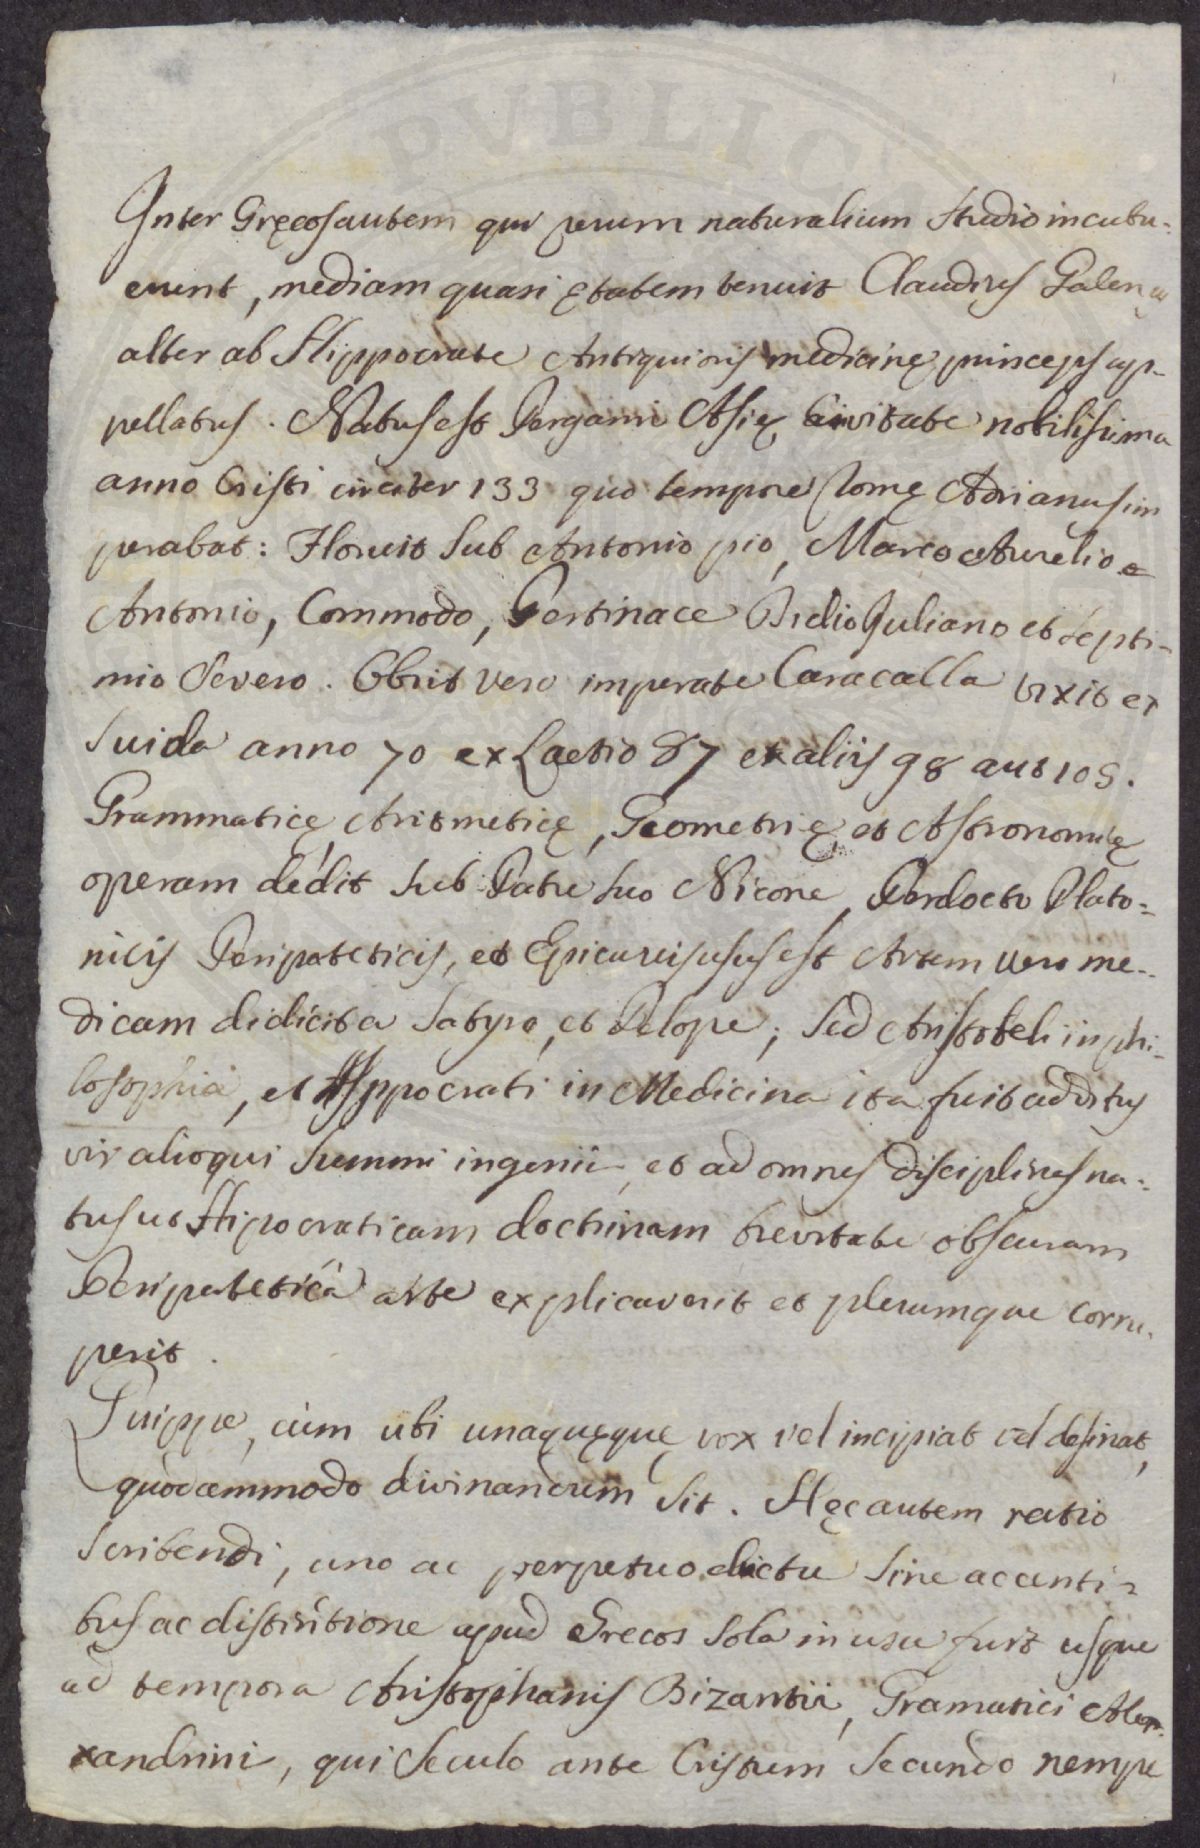 PVBLIC
Inter Gręcos autem qui rerum naturalium studio incubu-
erunt, mediam quasi ętatem tenuit Claudius Galenus
alter ab Hippocrate Antiquioris medicinę princeps ap-
pellatus. Natus est Pergami Asię Civitate nobilissima
anno Cristi circiter 133 quo tempore Romę Adrianus im
perabat: Floruit sub Antonio pio, Marco Aurelio
Antonio, Commodo, Pertinace Didio Juliano et Septi-
mio Severo. Obiit vero imperate Caracalla vixit ex
Suida anno 70 ex Laetio 87 ex aliis 98 aut 105.
Grammaticę Aritmeticę, Geometrię et Astronomię
operam dedit sub Patre suo Nicone, Perdocto Plato-
nicis Peripateticis, et Epicureis usus est Artem vero me-
dicam didicit a Satyro, et Pelope; sed Aristoteli in phi-
losophia, et Hyppocrati in Medicina ita fuit additus
vir alioqui summi ingenii, et ad omnes disciplinas na-
tus ut Hipocraticam doctrinam brevitate obscuram
Peripatetica arte explicaverit et plerumque corru-
perit.
Quippe, cum ubi unaquęque vox vel incipiat vel desinat,
quodammodo divinandum sit. Hęc autem ratio
scribendi, uno ac perpetuo ductu sine accenti-
bus ac distintione apud Grecos sola in usu fuit usque
ad tempora Aristophanis Bizantii, Gramatici Alex-
xandrini, qui seculo ante Cristum secundo nempe